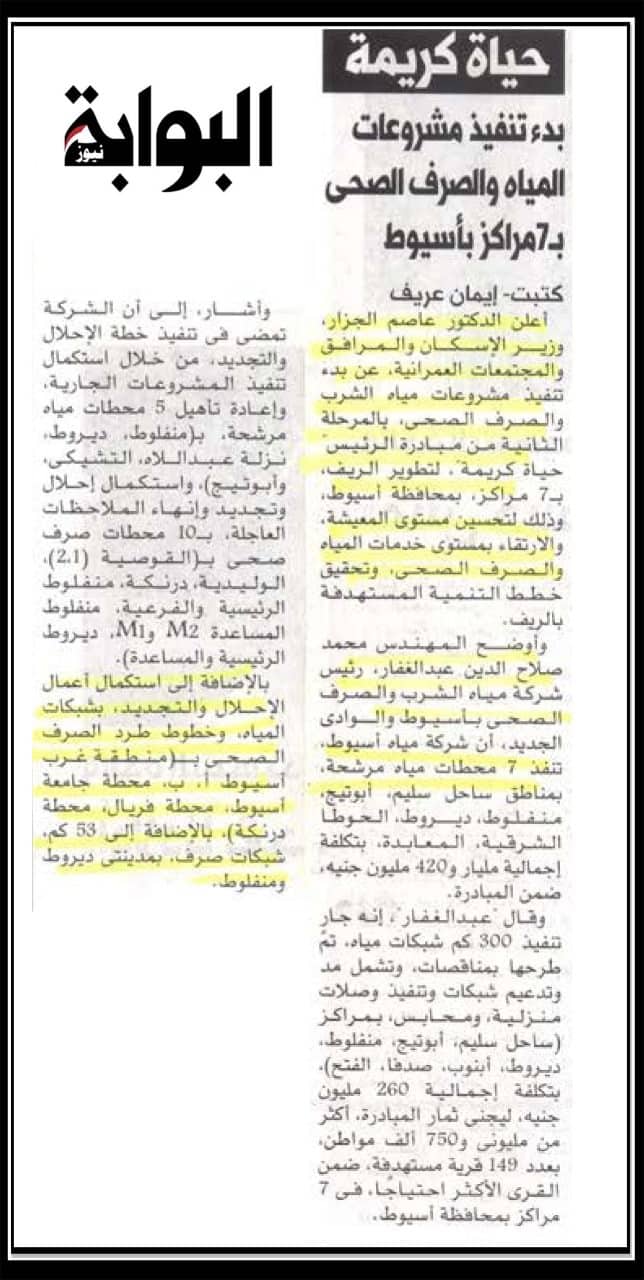 حياة كريمة
البوابة
نيوز
بدء تنفيذ مشروعات
المياه والصرف الصحى
بـ7مراكز بأسيوط
كتبت- إيمان عريف
أعلن الدكتور عاصم الجزار،
وزير الإسكان والمرافق
والمجتمعات العمرانية، عن بدء
تنفيذ مشروعات مياه الشرب
والصرف الصحى، بالمرحلة
الثانية من مبادرة الرئيس"
حياة كريمة"، لتطوير الريف،
بـ7 مراكز، بمحافظة أسيوط،
وذلك لتحسين مستوى المعيشة،
والارتقاء بمستوى خدمات المياه
والصرف الصحى، وتحقيق
خطط التنمية المستهدفة
بالريف.
وأوضح المهندس محمد
صلاح الدين عبدالغفار، رئيس
شركة مياه الشرب والصرف
الصحى بأسيوط والوادى
الجديد، أن شركة مياه أسيوط،
تنفذ 7 محطات مياه مرشحة،
بمناطق ساحل سليم، أبوتيج،
منفلوط، ديروط، الحوطا
الشرقية، المعابدة، بتكلفة
إجمالية مليار و420 مليون جنيه،
ضمن المبادرة.
وقال "عبدالغفار"، إنه جار
تنفيذ 300 كم شبكات مياه، تم
طرحها بمناقصات، وتشمل مد
وتدعيم شبكات وتنفيذ وصلات
منزلية، ومحابس، بمراكز
(ساحل سليم، أبوتيج، منفلوط،
ديروط، أبنوب، صدفا، الفتح)،
بتكلفة إجمالية 260 مليون
جنيه، ليجنى ثمار المبادرة، أكثر
من مليونى و750 ألف مواطن،
بعدد 149 قرية مستهدفة، ضمن
القرى الأكثر احتياجًا، فى 7
مراكز بمحافظة أسيوط.
وأشار، إلى أن الشركة
تمضى فى تنفيذ خطة الإحلال
والتجديد، من خلال استكمال
تنفيذ المشروعات الجارية،
وإعادة تأهيل 5 محطات مياه
مرشحة، بـ(منفلوط، ديروط،
نزلة عبداللاه، التشيكى،
وأبوتيج)، واستكمال إحلال
وتجديد وإنهاء الملاحظات
العاجلة، بـ10 محطات صرف
صحى بـ(القوصية (2،1)،
الوليدية، درنكة، منفلوط
الرئيسية والفرعية، منفلوط
المساعدة M2 وM1، ديروط
الرئيسية والمساعدة).
بالإضافة إلى استكمال أعمال
الإحلال والتجديد، بشبكات
المياه، وخطوط طرد الصرف
الصحى بـ(منطقة غرب
أسيوط أ، ب، محطة جامعة
أسيوط، محطة فريال، محطة
درنكة)، بالإضافة إلى 53 كم،
شبكات صرف، بمدينتى ديروط
ومنفلوط.